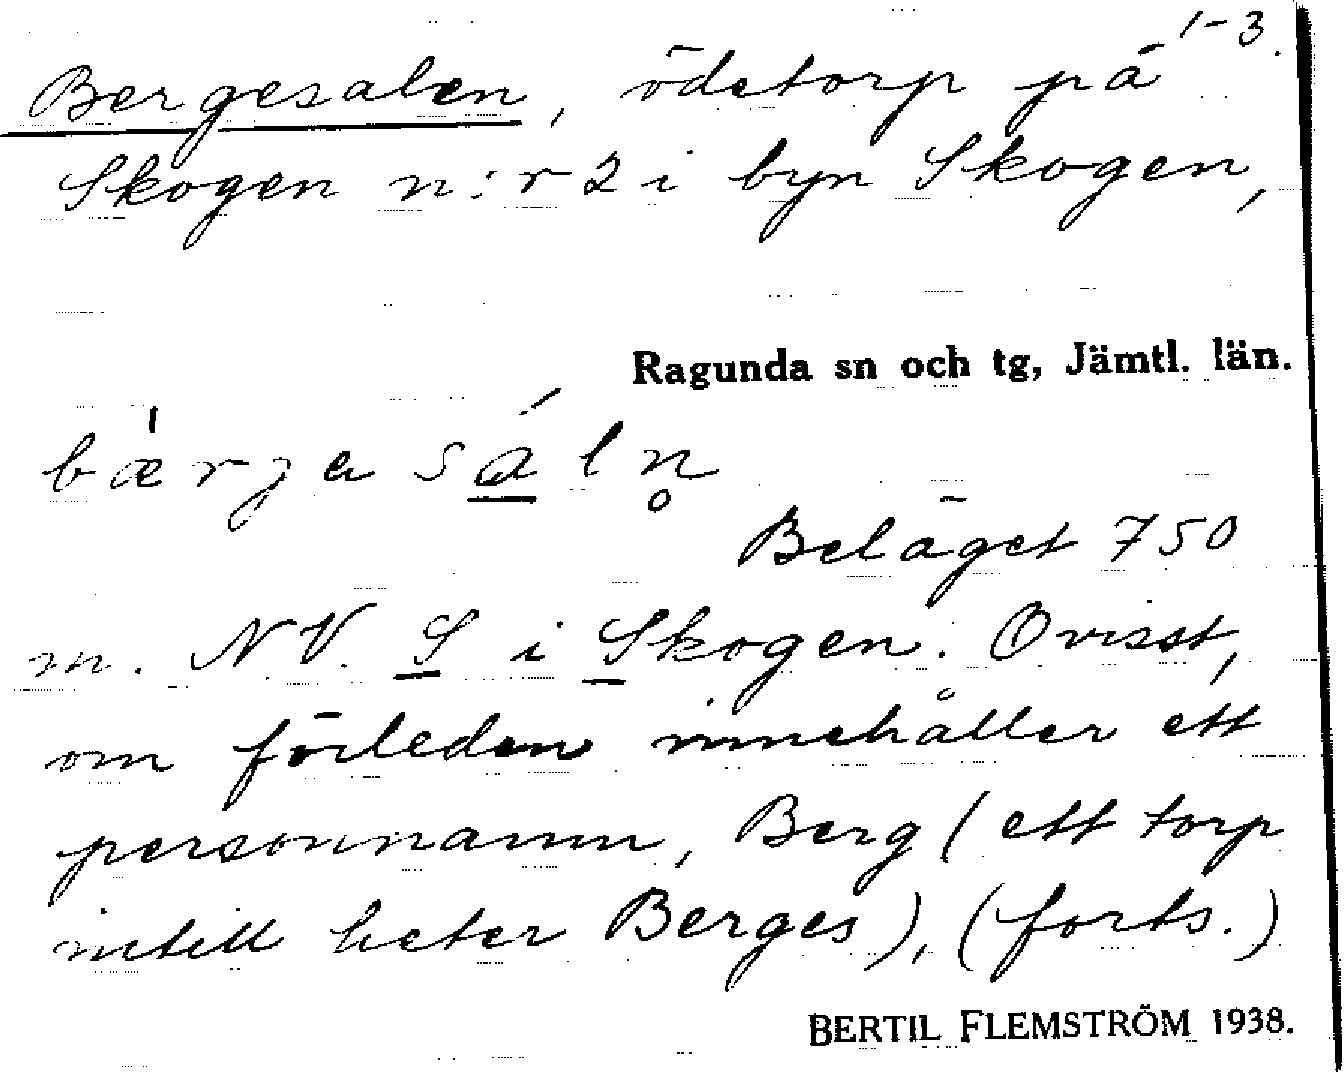 1-3.
Bergesalen, ödetorp på
Skogen n:r 2 i byn Skogen,
Ragunda sn och tg, Jämtl. län.
bær̍ȷasáln̥
Beläget 750
m. NV. S i Skogen. Ovisst,
om förleden innehåller ett
personnamn, Berg (ett torp
intill heter Berges), (forts.)
BERTIL FLEMSTRÖM 1938.